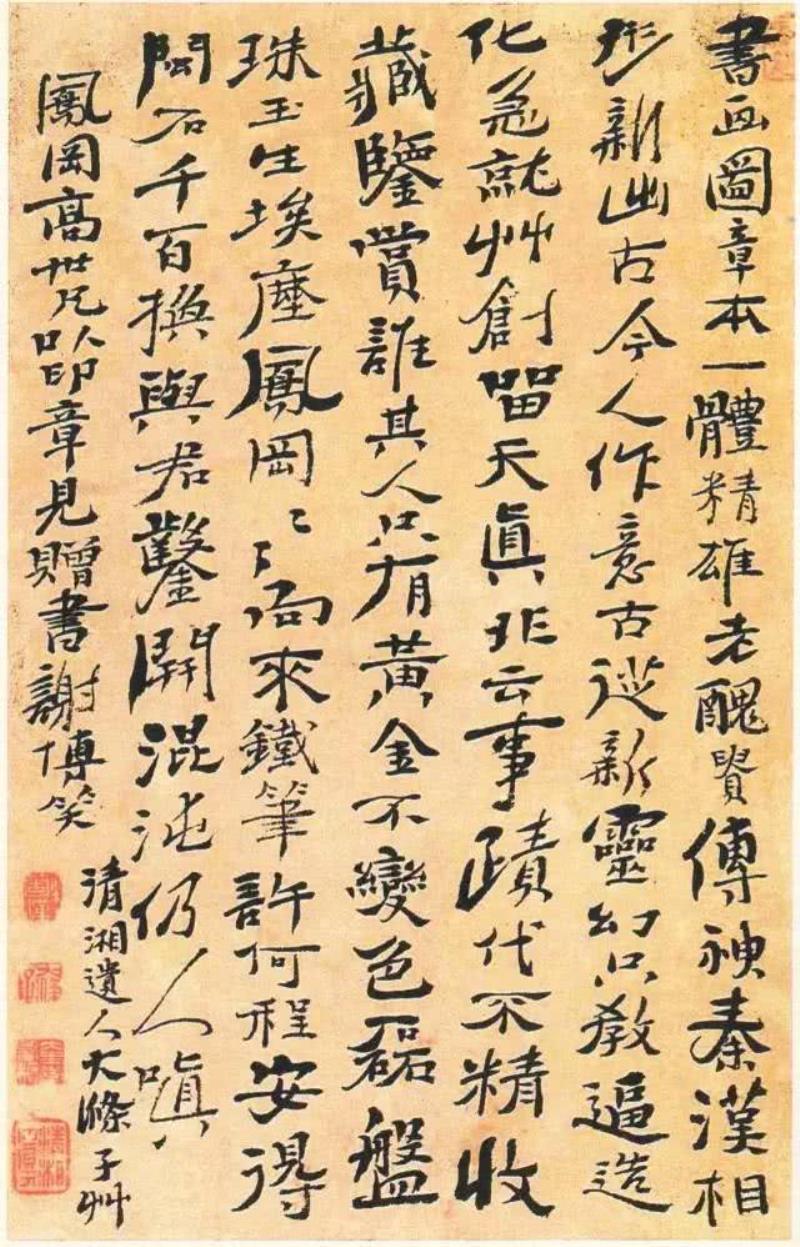 書画圖章本一體精雄老醜貴傳神秦漢相
形新出古今人作意古從新靈幻只教逼造
化急就艸創留天真非云事蹟代不精收
藏鑒賞誰其人只有黃金不變色磊盤
珠玉生埃塵鳳岡〻〻向來鐵筆許何程安得
閑石千百換與君鑿開混沌仍人嗔
鳳岡高世兄以印章見贈書謝博笑
清湘遺人大滌子艸